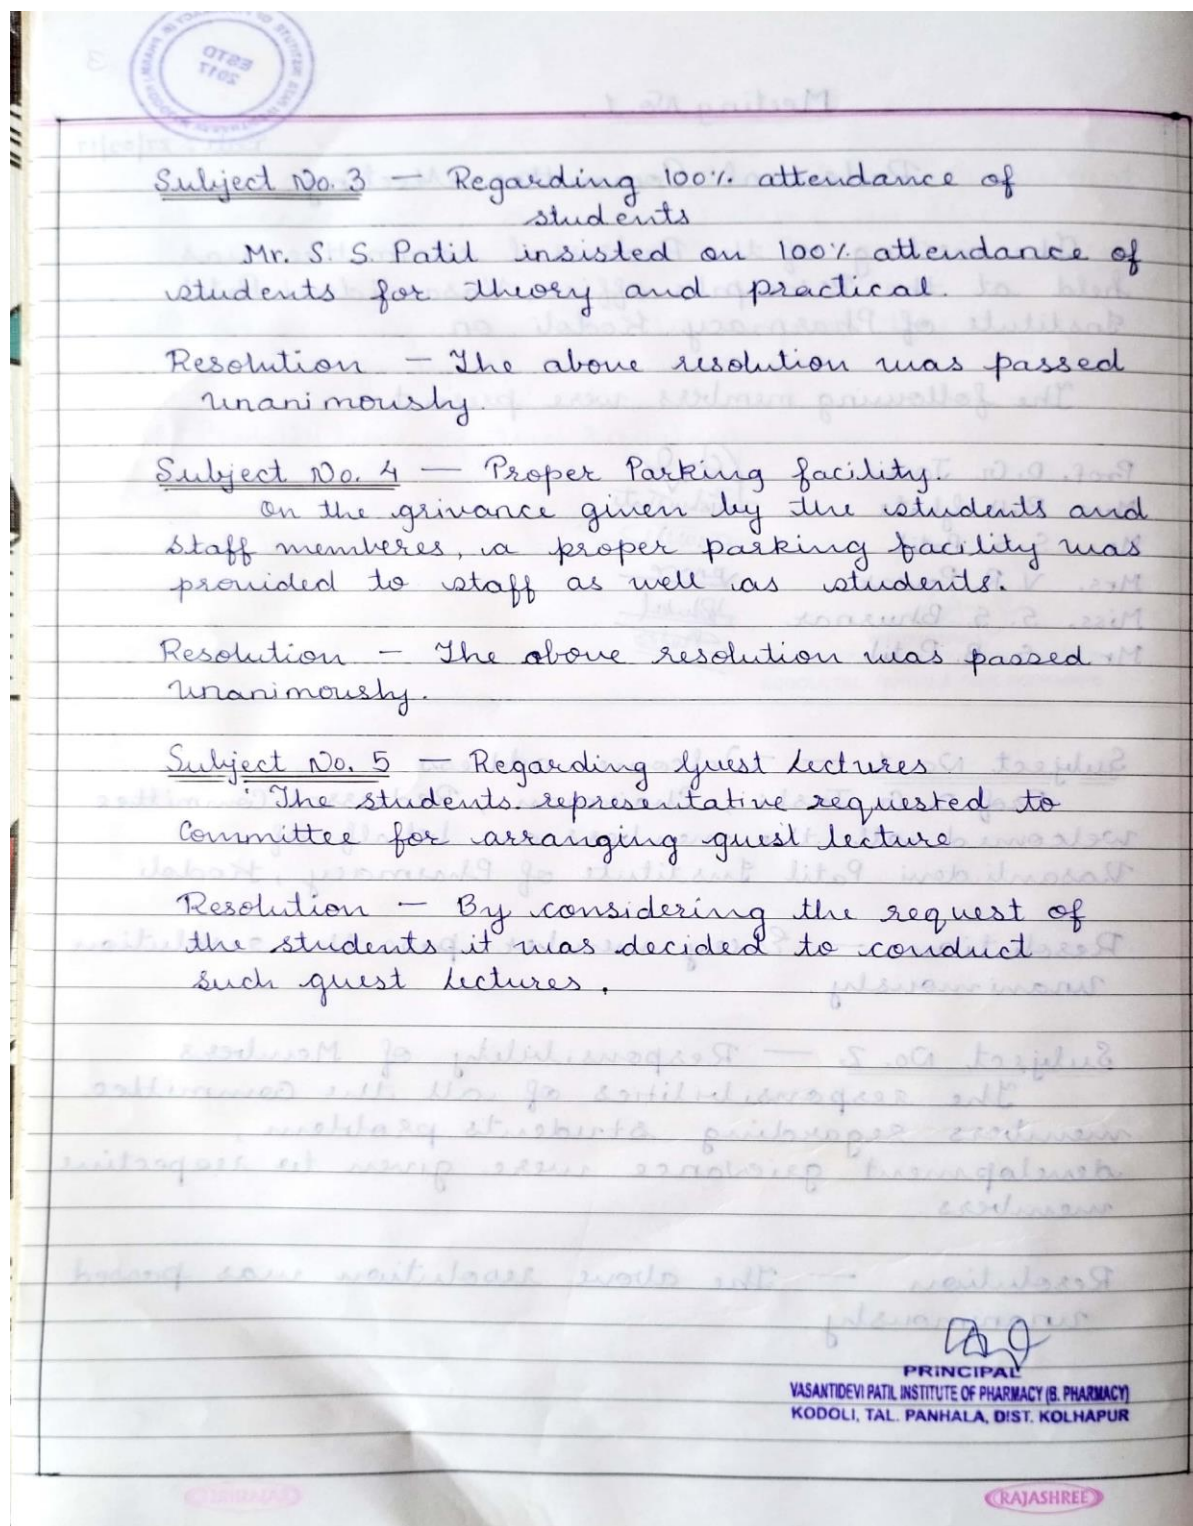 Subject No. 3 — Regarding 100% attendance of
students
Mr. S. S. Patil insisted on 100% attendance of
students for theory and practical.
Resolution — The above resolution was passed
unanimously.
Subject No. 4 — Proper Parking facility.
On the grivance given by the students and
staff memberes, a proper parking facility was
provided to staff as well as students.
Resolution — The above resolution was passed
unanimously.
Subject No. 5 — Regarding Guest Lectures.
The students representative requested to
Committee for arranging guest lecture
Resolution — By considering the request of
the students it was decided to conduct
such guest lectures.
PRINCIPAL
VASANTIDEVI PATIL INSTITUTE OF PHARMACY (B. PHARMACY)
KODOLI, TAL. PANHALA, DIST. KOLHAPUR
RAJASHREE